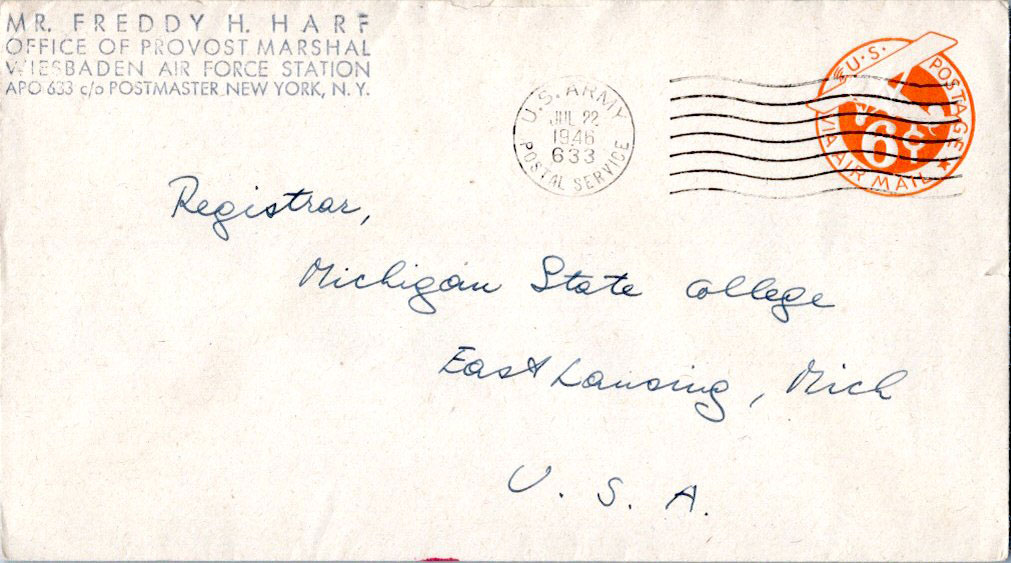 MR. FREDDY H. HARF
OFFICE OF PROVOST MARSHAL
WIESBADEN AIR FORCE STATION
APO 633 c/o POSTMASTER NEW YORK, N.Y.
U.S. ARMY
JUL 22
1946
633
POSTAL SERVICE
U.S. POSTAGE
6¢
VIA AIR MAIL
Registrar,
Michigan State College
East Lansing, Mich
U. S. A.